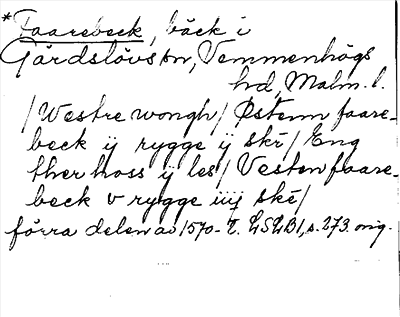 *Faarebeck, bäck i
Gärdslövs sn, Vemmenhögs
hd, Malm. l.
/Westre wongh/ Østenn faare-
beck ij rygge ij skē/ Eng
ther hoss ij les/ Vesten faare-
beck v rygge iiij skē/
förra delen av 1570-t. LSLB1, s. 273. orig.